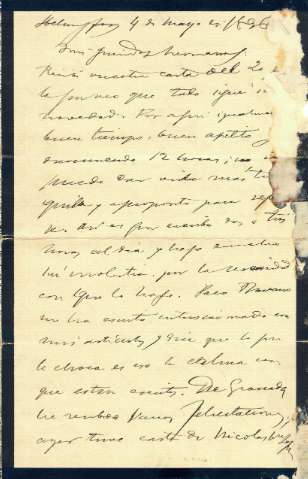 Helsingfors 4 de mayo de 1896
Mis queridas hermanas:
Recibí vuestra carta del 20 y
la por veo que todo sigue sin
novedad. Por aquí igualmente
buen tiempo, buen apetito y
durmiendo 12 horas; no se
puede dar vida más tran
quila y a propósito para
Así es que escribo dos o tres
horas al día y trabajo
ni molestia, por la
con que lo hago. Paco Navarro
me ha escrito entusiasmado con
mis artículos, y dice que lo que
le choca es la calma con
que están escritos. De Granada
he recibido varias felicitaciones,
ayer tuve carta de Nicolás